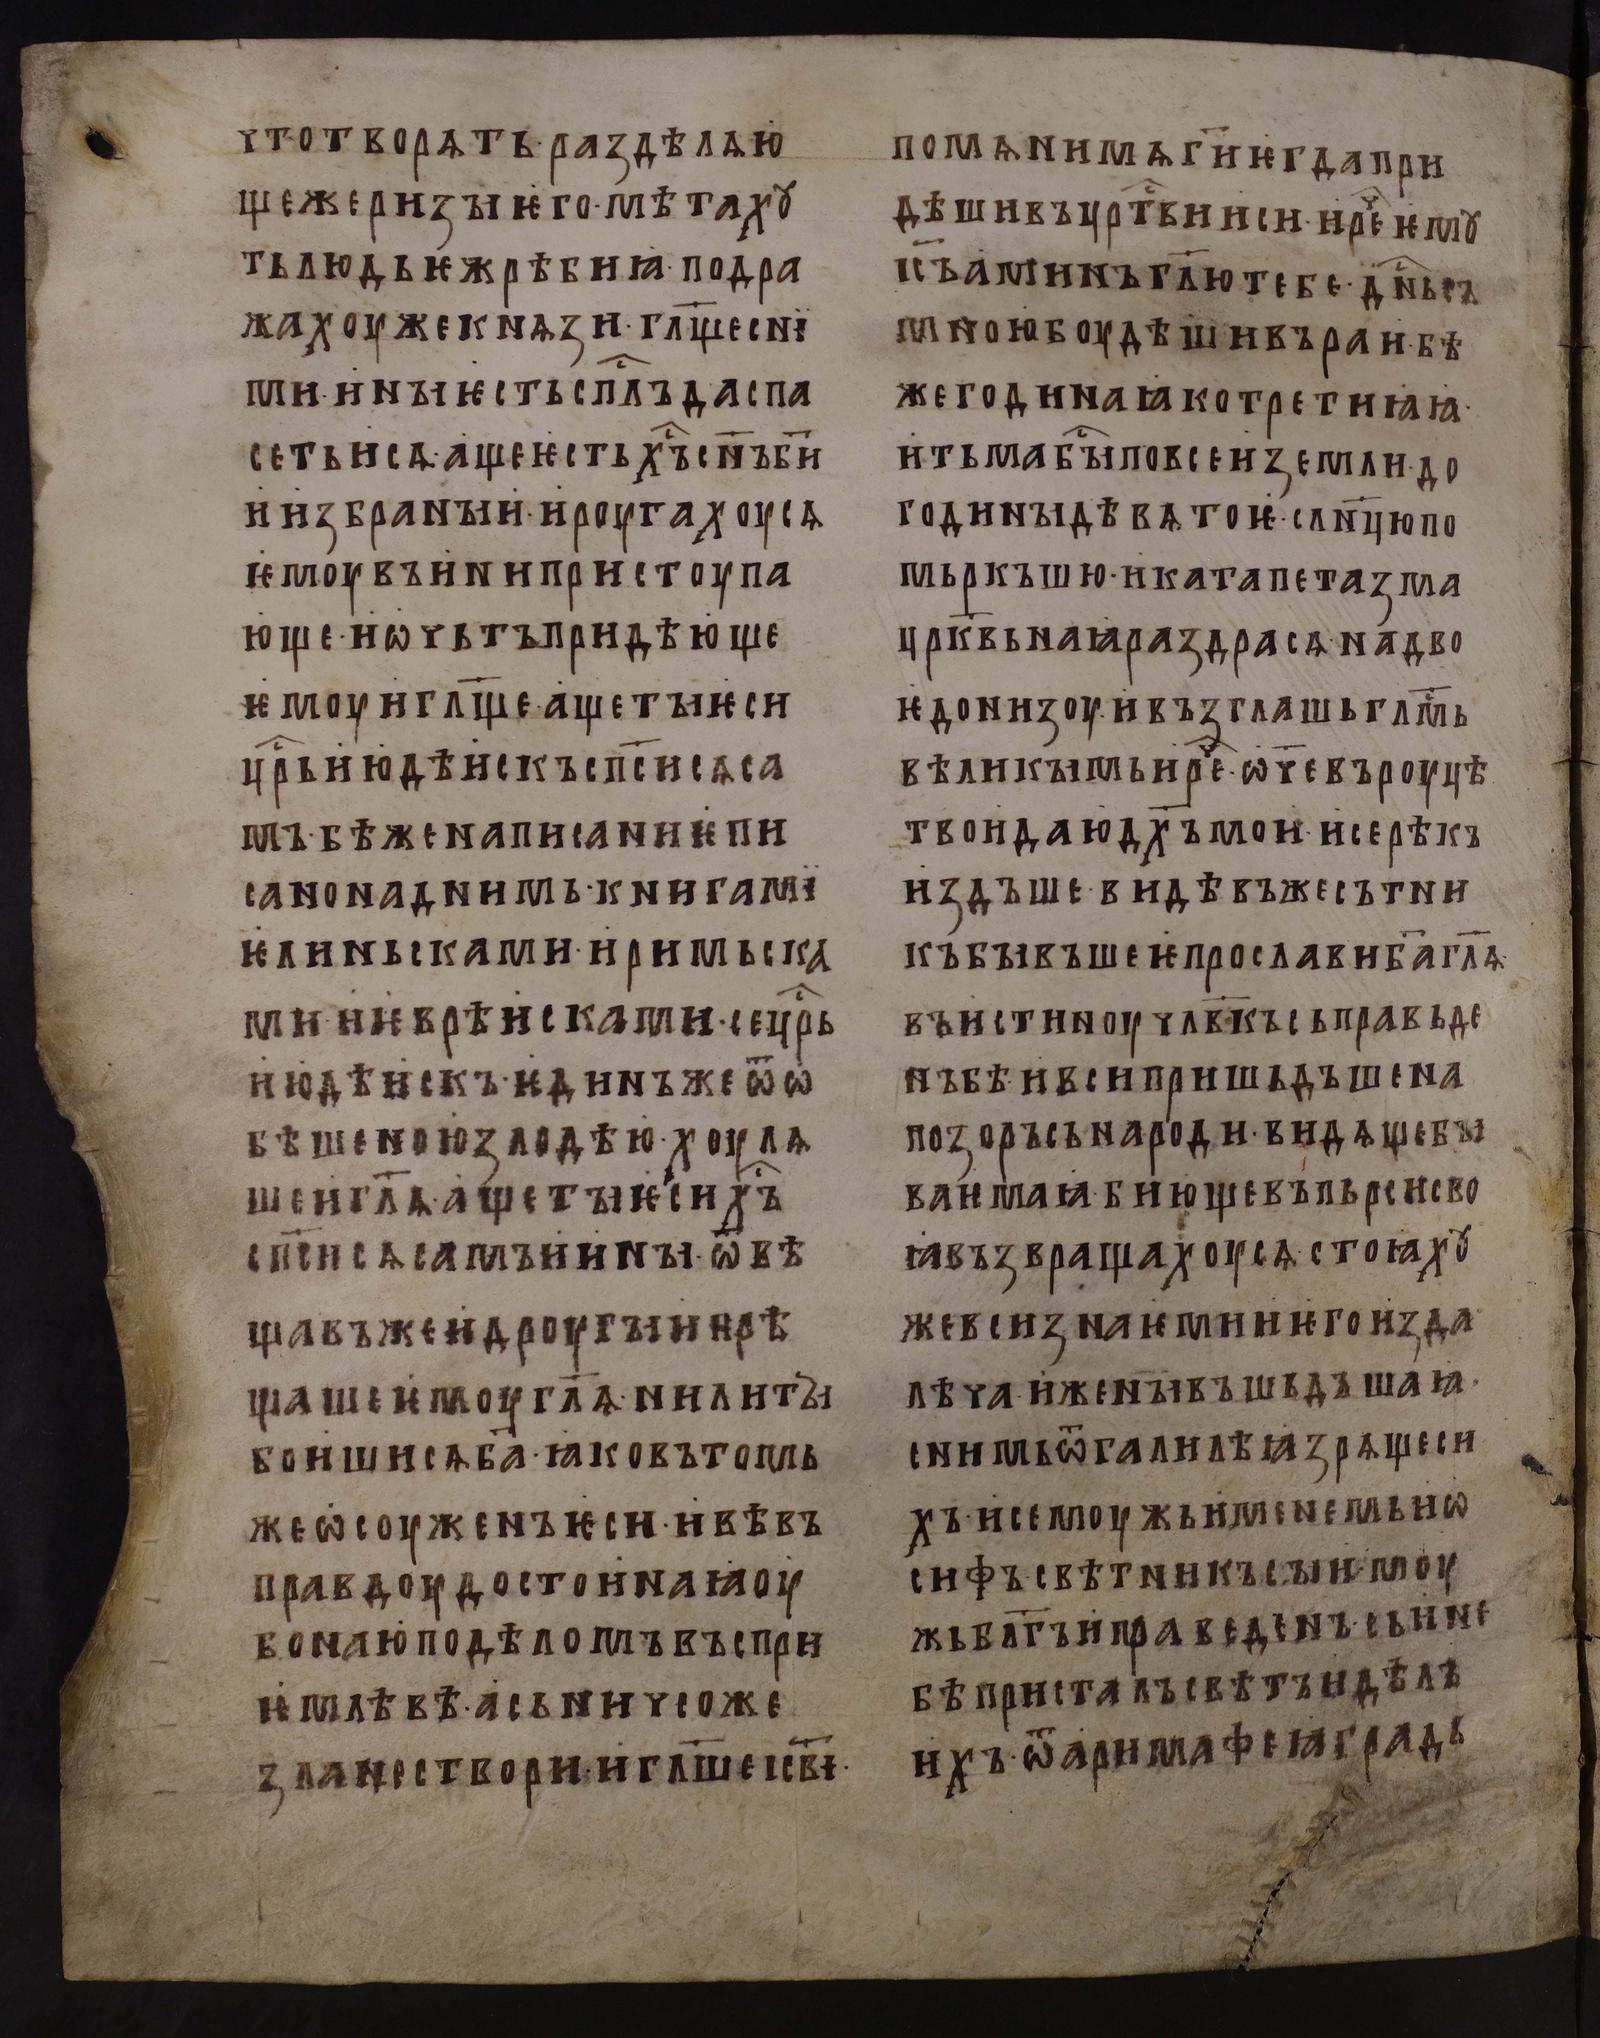 чтотворѧть·раздѣлѧю
щежеризъıѥго·мѣтахꙋ
тьлюдьѥжрѣбиꙗ·подра
жахоужекнѧзи·гл҃щеснї
ми·инъıѥстьсп҃лъдаспа
сетьисѧ·ащеѥстьх҃ъсн҃ъби҃
иизбранъıи·ироугахоусѧ
ѥмоувъинипристоупа
юще·иѡчьтъпридѣюще
ѥмоуигл҃ще·ащетъıѥси
цр҃ьиюдѣискъсп҃сисѧса
мъ·бѣженаписаниѥпи
санонаднимь·книгамї
ѥлиньсками·иримьска
ми·иѥврѣисками·сецр҃ь
июдѣискъ·ѥдинъжеѿѡ
бѣшеноюзлодѣю·хоулѧ
шеигл҃ѧ·ащетъıѥсих҃ъ
сп҃сисѧсамъиинъı·ѿвѣ
щавъжеидроугъıиирѣ
щашеѥмоугл҃ѧ·нилитъı
боишисѧба҃·ꙗковътомь
жеѡсоуженъѥси·ивѣвъ
правдоудостоинаꙗоу
бонаюподѣломъвъспри
ѥмлѣвѣ·асьничсоже
зланествори·игл҃шеıс҃ви·
помѧнимѧги҃ѥгдапри
дѣшивъцр҃твииси·ирⷱ҇еѥмꙋ
ıс҃ъаминъгл҃ютебе·дн҃ьсъ
мноюбоудѣшивъраи·бѣ
жегодинаꙗкотретиꙗꙗ·
итьмабъıⷭ҇повсеиземли·до
годинъıдѣвѧтоѥ·слн҃цюпо
мьркъшю·икатапетазма
црк҃вьнаꙗраздрасѧ·надво
ѥдонизоу·ивъзглашьглм҃ь
вѣликъıмьирⷱ҇е·ѡч҃евъроуцѣ
твоидаюдх҃ъмои·исерѣкъ
издъше·видѣвъжесътни
къбъıвъшеѥпрославиба҃гл҃ѧ·
въистиноучлв҃късьправьде
нъбѣ·ивсипришьдъшена
позоръсьнароди·видѧщебъı
ваимаꙗ·биющевъпьрсисво
ꙗвъзвращахоусѧ·стоꙗхꙋ
жевсизнаѥмииѥгоизда
лѣча·иженъıвъшьдъшаꙗ·
снимьѿгалилѣꙗзрѧщеси
хъ·исемоужьименемьиѡ
сифъ·свѣтникъсъıи·моу
жьблг҃ъиправеденъ·сьине
бѣпристалъсвѣтъидѣлѣ
ихъ·ѿаримафеꙗградь